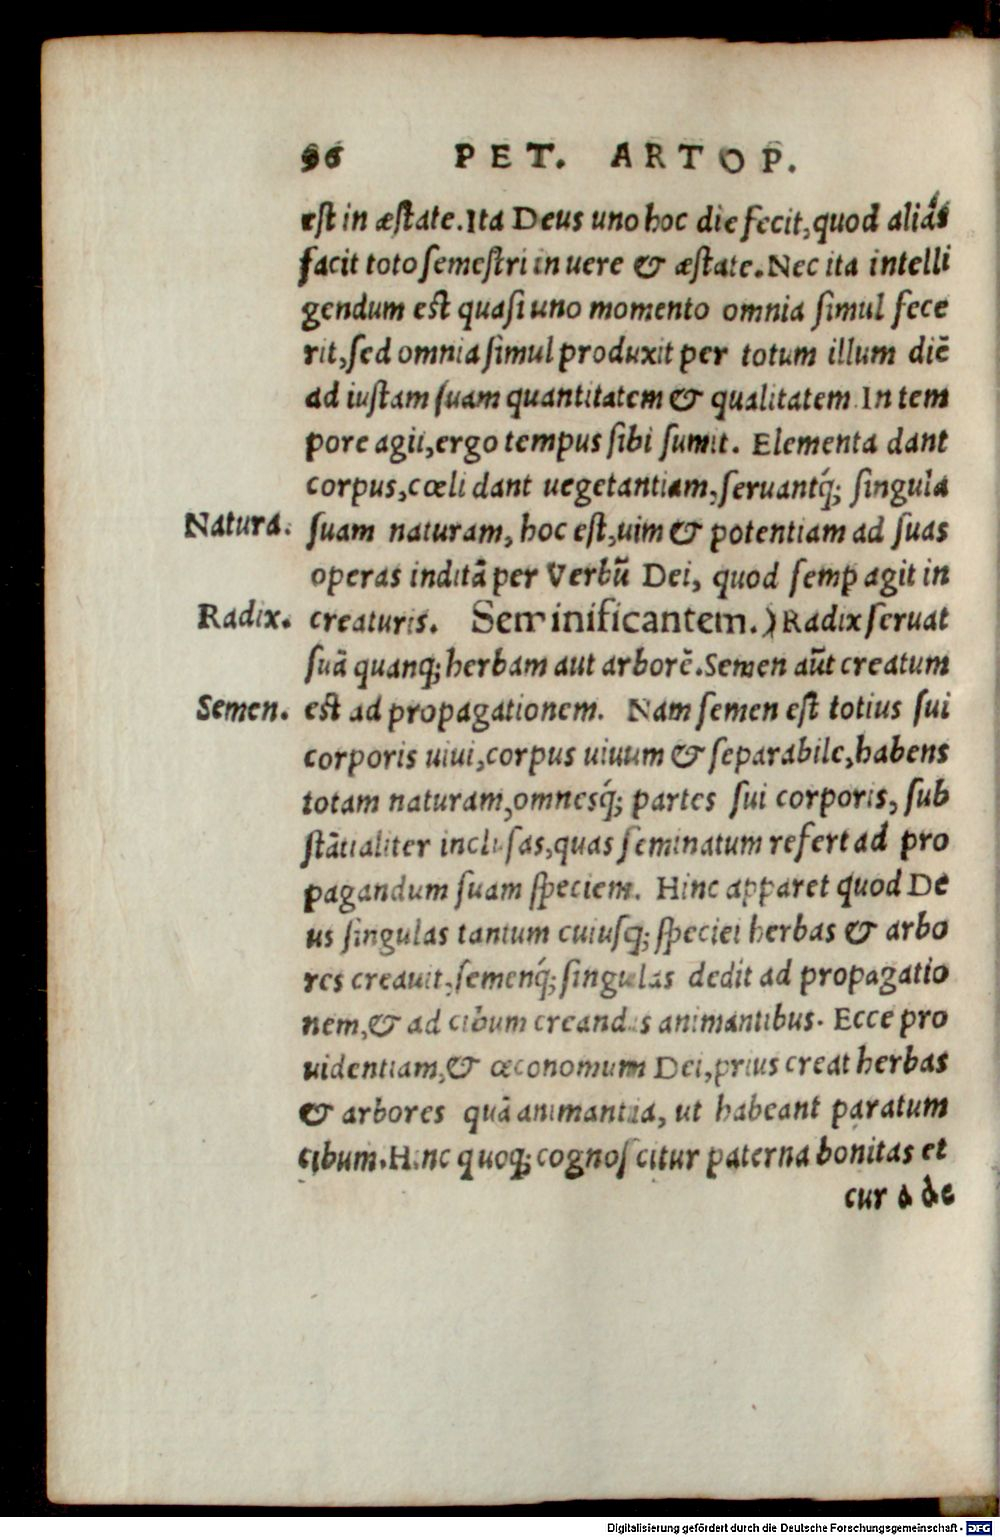 96 PET. ARTOP.
est in æstate. Ita Deus uno hoc die fecit, quod aliâs
facit toto semestri in uere & æstate. Nec ita intelli
gendum est quasi uno momento omnia simul fece
rit, sed omnia simul produxit per totum illum diẽ
ad iustam suam quantitatem & qualitatem. In tem
pore agit, ergo tempus sibi sumit. Elementa dant
corpus, cœli dant uegetantiam, seruantq́; singula
Natura. suam naturam, hoc est, uim & potentiam ad suas
operas inditã per Verbũ Dei, quod semp agit in
Radix. creaturis. Seminificantem.) Radix seruat
suã quanq; herbam aut arborẽ. Semen aũt creatum
Semen. est ad propagationem. Nam semen est totius sui
corporis uiui, corpus uiuum & separabile, habens
totam naturam, omnesq́; partes sui corporis, sub
stãtialiter inclusas, quas seminatum refert ad pro
pagandum suam speciem. Hinc apparet quod De
us singulas tantum cuiusq; speciei herbas & arbo
res creauit, semenq́; singulas dedit ad propagatio
nem, & ad cibum creandis animantibus. Ecce pro
uidentiam, & œconomum Dei, prius creat herbas
& arbores quã animantia, ut habeant paratum
cibum. Hinc quoq; cognoscitur paterna bonitas et
cura de
Digitalisierung gefördert durch die Deutsche Forschungsgemeinschaft - DFG